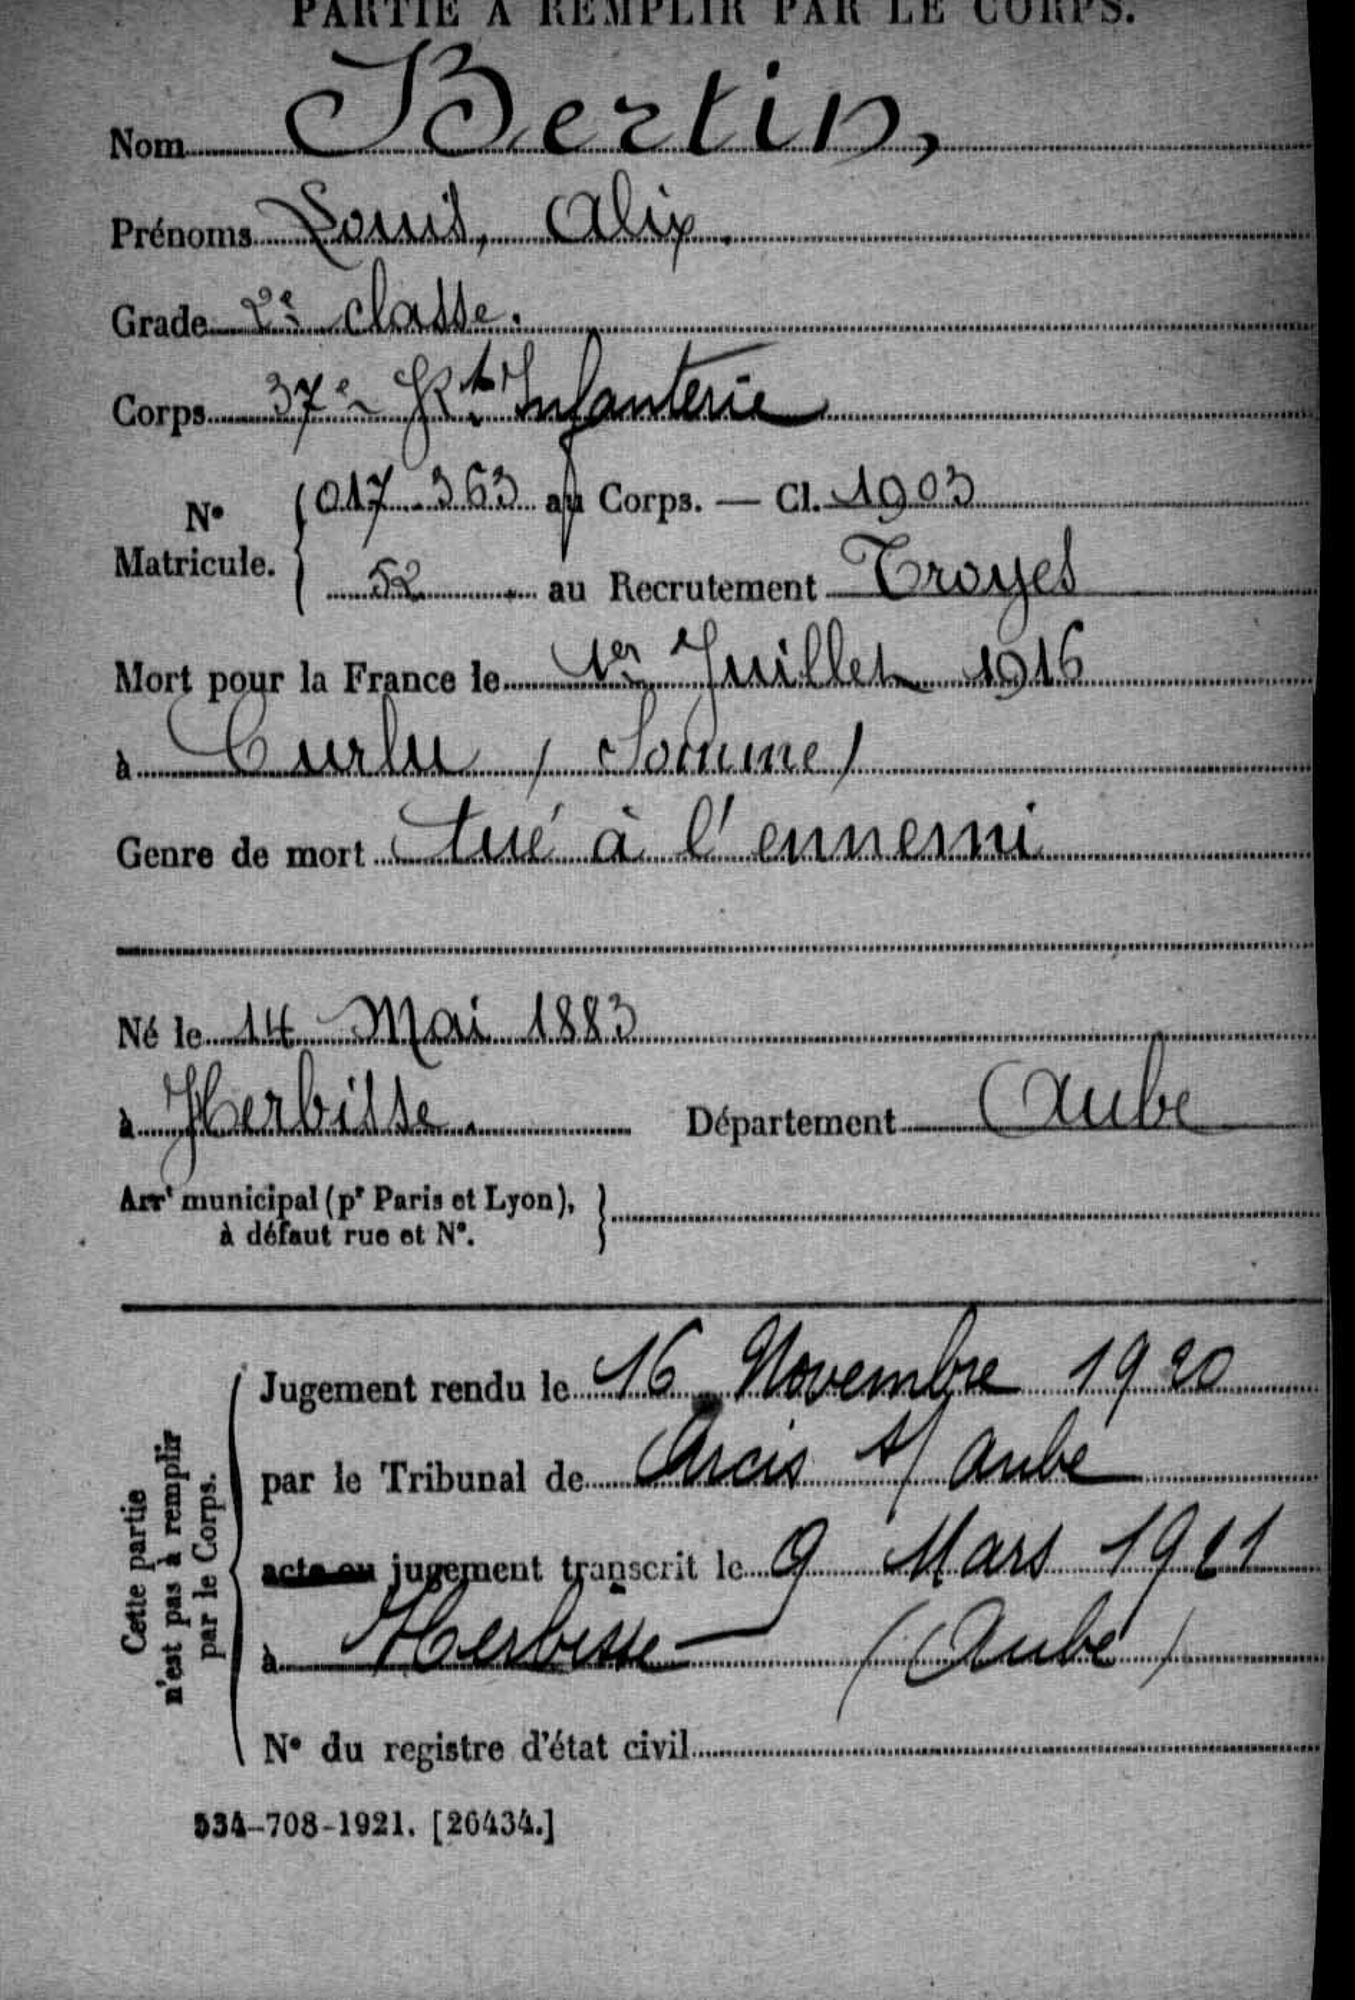 PARTIE À REMPLIR PAR LE CORPS.
Nom Bertin,
Prénoms Louis, Alix.
Grade 2e classe.
Corps 37e Rt Infanterie
N° Matricule. { 017 363 au Corps. — Cl. 1903
52 au Recrutement Troyes
Mort pour la France le 1er Juillet 1916
à Curlu (Somme)
Genre de mort tué à l'ennemi
Né le 14 Mai 1883
à Herbisse. Département Aube
Arrt municipal (pr Paris et Lyon), }
à défaut rue et N°.
Cette partie
n'est pas à remplir
par le Corps.
Jugement rendu le 16 Novembre 1920
par le Tribunal de Arcis s/ Aube
acte ou jugement transcrit le 9 Mars 1921
à Herbisse (Aube)
N° du registre d'état civil
534-708-1921. [26434.]